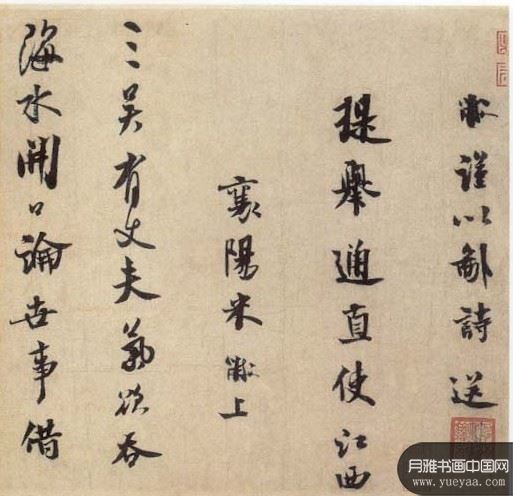 黻謹以鄙詩送
提舉通直使江西
襄陽米黻上
三吴有丈夫氣欲吞
海水開口論世事借
月雅书画中国网
www.yueyaa.com